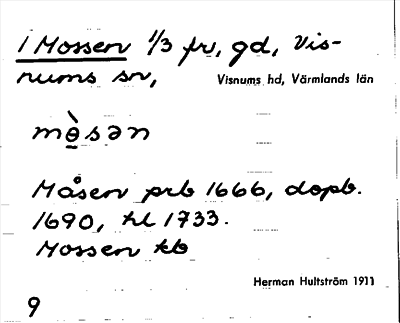 1 Mossen 1/3 fr, gd, Vis-
nums sn,
Visnums hd, Värmlands län
mɵ̀sən
Måsen prb 1666, dopb.
1690, hl 1733.
Mossen kb
Herman Hultström 1911
9